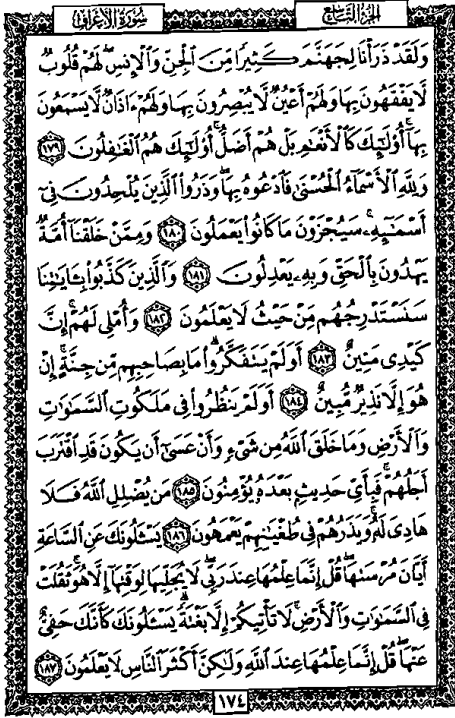 سُورَةُ الأَعْرَافِ الجُزْءُ التَّاسِعُ
وَلَقَدْ ذَرَأْنَا لِجَهَنَّمَ كَثِيرًا مِّنَ ٱلْجِنِّ وَٱلْإِنسِۖ لَهُمْ قُلُوبٌ
لَّا يَفْقَهُونَ بِهَا وَلَهُمْ أَعْيُنٌ لَّا يُبْصِرُونَ بِهَا وَلَهُمْ ءَاذَانٌ لَّا يَسْمَعُونَ
بِهَآۚ أُو۟لَٰٓئِكَ كَٱلْأَنْعَٰمِ بَلْ هُمْ أَضَلُّۚ أُو۟لَٰٓئِكَ هُمُ ٱلْغَٰفِلُونَ ١٧٩
وَلِلَّهِ ٱلْأَسْمَآءُ ٱلْحُسْنَىٰ فَٱدْعُوهُ بِهَاۖ وَذَرُوا۟ ٱلَّذِينَ يُلْحِدُونَ فِىٓ
أَسْمَٰٓئِهِۦۚ سَيُجْزَوْنَ مَا كَانُوا۟ يَعْمَلُونَ ١٨٠ وَمِمَّنْ خَلَقْنَآ أُمَّةٌ
يَهْدُونَ بِٱلْحَقِّ وَبِهِۦ يَعْدِلُونَ ١٨١ وَٱلَّذِينَ كَذَّبُوا۟ بِـَٔايَٰتِنَا
سَنَسْتَدْرِجُهُم مِّنْ حَيْثُ لَا يَعْلَمُونَ ١٨٢ وَأُمْلِى لَهُمْۚ إِنَّ
كَيْدِى مَتِينٌ ١٨٣ أَوَلَمْ يَتَفَكَّرُوا۟ۗ مَا بِصَاحِبِهِم مِّن جِنَّةٍۚ إِنْ
هُوَ إِلَّا نَذِيرٌ مُّبِينٌ ١٨٤ أَوَلَمْ يَنظُرُوا۟ فِى مَلَكُوتِ ٱلسَّمَٰوَٰتِ
وَٱلْأَرْضِ وَمَا خَلَقَ ٱللَّهُ مِن شَىْءٍ وَأَنْ عَسَىٰٓ أَن يَكُونَ قَدِ ٱقْتَرَبَ
أَجَلُهُمْۖ فَبِأَىِّ حَدِيثٍۭ بَعْدَهُۥ يُؤْمِنُونَ ١٨٥ مَن يُضْلِلِ ٱللَّهُ فَلَا
هَادِىَ لَهُۥۚ وَيَذَرُهُمْ فِى طُغْيَٰنِهِمْ يَعْمَهُونَ ١٨٦ يَسْـَٔلُونَكَ عَنِ ٱلسَّاعَةِ
أَيَّانَ مُرْسَىٰهَاۖ قُلْ إِنَّمَا عِلْمُهَا عِندَ رَبِّىۖ لَا يُجَلِّيهَا لِوَقْتِهَآ إِلَّا هُوَۚ ثَقُلَتْ
فِى ٱلسَّمَٰوَٰتِ وَٱلْأَرْضِۚ لَا تَأْتِيكُمْ إِلَّا بَغْتَةًۗ يَسْـَٔلُونَكَ كَأَنَّكَ حَفِىٌّ
عَنْهَاۖ قُلْ إِنَّمَا عِلْمُهَا عِندَ ٱللَّهِ وَلَٰكِنَّ أَكْثَرَ ٱلنَّاسِ لَا يَعْلَمُونَ ١٨٧
١٧٤